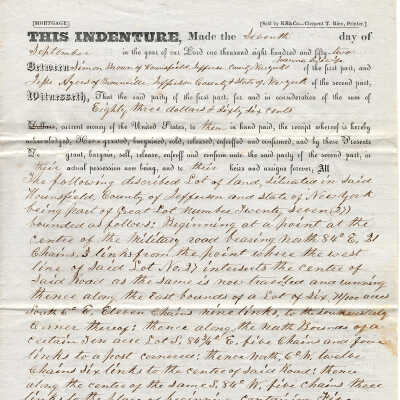 [MORTGAGE.] [Sold by Clement T. Rice, Printer.]
THIS INDENTURE, Made the Seventh day of
September in the year of our Lord one thousand eight hundred and fifty two
Between Simon Brown of Hounsfield Jefferson County New York of the first part, and
Ayers of Brownville Jefferson County & State of New York of the second part,
Witnesseth, That the said party of the first part, for and in consideration of the sum of
Eighty three dollars & Sixty Six cents
Dollars, current money of the United States, to them in hand paid, the receipt whereof is hereby
acknowledged, Have granted, bargained, sold, released, enfeoffed and confirmed, and by these Presents
Do grant, bargain, sell, release, enfeoff and confirm unto the said party of the second part, in
their actual possession now being, and to their heirs and assigns forever, All
The following discribed Lot of land, Situated in Said
Hounsfield, County of Jefferson and State of New York
being part of Great Lot Number Twenty Seven (27)
bounded as follows: Beginning at a point at the
centre of the Military road bearing North 84° E. 31
Chains, 3 links from the point where the west
line of Said Lot No. 27 intersects the centre of
Said Road as the same is now traveled and running
thence along the East bounds of a Lot of Six acres
South 6° E. Eleven Chains nine links, to the
corner thereof; thence along the North Bounds of a
certain ten acre Lot S. 84° E. five Chains and four
links to a post cornered; thence North 6° W. twelve
Chains Six links to the centre of Said Road; thence
along the centre of the same S. 84° W. five chains three
links to the place of beginning containing